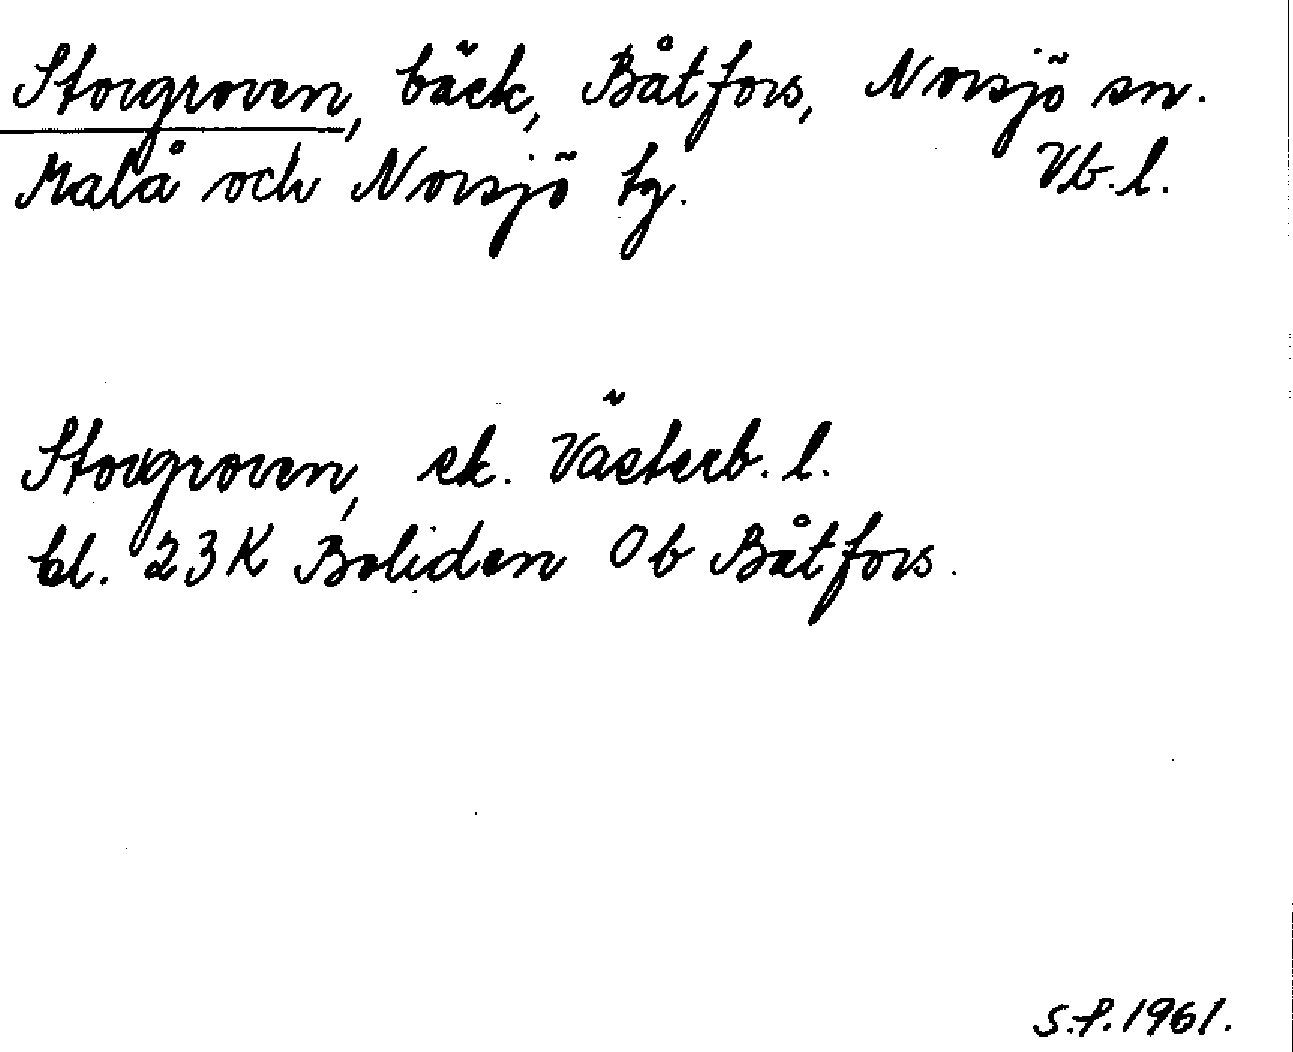 Storgroven, bäck, Båtfors, Norsjö sn.
Malå och Norsjö tg. Vb. l.
Storgroven, ek. Västerb. l.
bl. 23K Boliden Ob Båtfors.
S.P. 1961.